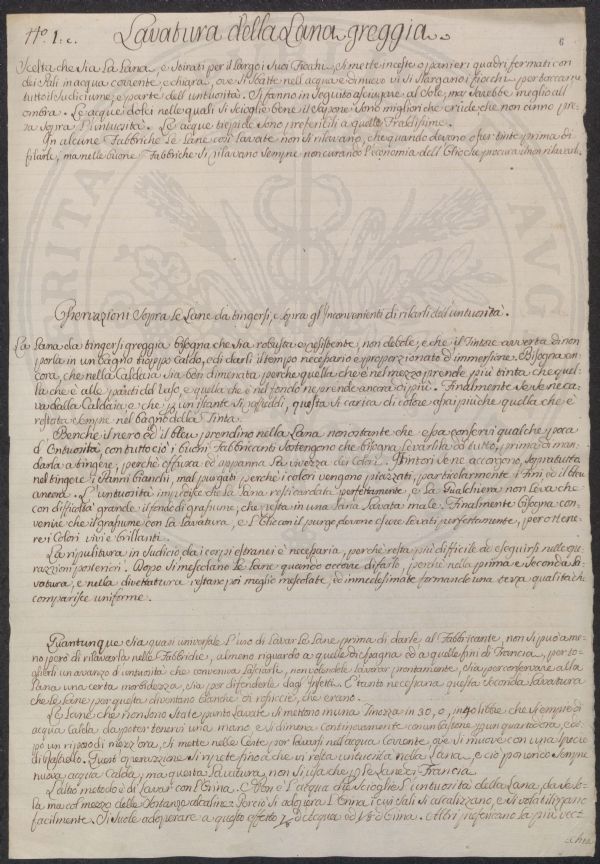 N.o 1. c.
Lavatura della Lana greggia.
6
Scelta che sia la Lana, e stirati per il largo i suoi fiocchi, si mette in ceste o panieri quadri, formati con
dei Pali in acqua corrente, e chiara, ove si sbatte nell'acqua e di nuovo vi si slargano i fiocchi, per staccarne
tutto il sudiciume, e parte dell'untuosità. Si fanno in seguito asciugare al Sole, ma sarebbe meglio all'
ombra. Le acque dolci nelle quali si scioglie bene il sapone sono migliori che crude, che non anno pre-
sa sopra l'untuosità. Le acque tiepide sono preferibili a quelle freddissime.
In alcune Fabbriche le Lane così lavate non si rilavano, che quando devono esser tinte prima di
filarle, ma nelle buone Fabbriche si rilavano sempre non curando l'economia dell'Olio che procura il non rilavarle.
Osservazioni sopra le Lane da tingersi, e sopra gl'Inconvenienti di rilasciarli dell'untuosità.
La Lana da tingersi greggia bisogna che sia robusta e resistente, non debole, e che il Tintore avverta di non
porla in un bagno troppo caldo, e di darli il tempo necessario e proporzionato d'immersione. Bisogna an-
cora, che nella Caldaia sia ben dimenata perche quella che è nel mezzo prende più tinta che quel-
la che è alle pareti del Vaso, e quella che è nel fondo ne prende ancora di più. Finalmente se se ne ca-
va dalla Caldaia e che p. un istante si raffreddi, questa si carica di colore assai più che quella che è
restata sempre nel bagno della Tinta.
Benche il nero ed il bleu prendino nella Lana nonostante che essa conservi qualche poca
d'Untuosità, con tutto ciò i buoni Fabbricanti sostengono che bisogna levarla da tutto, prima di man-
darla a tingere, perche offusca ed appanna la vivezza dei Colori. I Tintori se ne accorgono, sopratutto
nel tingere i Panni bianchi, mal purgati perche i colori vengono piazzati, particolarmente i fini ed il bleu
ancora. L'untuosità impedisce che la Lana resti cardata perfettamente, e la Gualchiera non leva che
con difficoltà grande il fondo di grassume, che resta in una Lana lavata male. Finalmente bisogna con-
venire che il grassume con la lavatura, e l'Olio con il purgo devono essere levati perfettamente, per ottene-
re i Colori vivi e brillanti.
La ripulitura in sudicio dai corpi estranei è necessaria, perche resta più difficile ad eseguirsi nelle ope-
razzioni posteriori. Dopo si mescolano le Lane quando occorre di farlo, perche nella prima e seconda la-
vatura, e nella divettatura restano poi meglio mescolate, ed immedesimate formando una terza qualità che
comparisce uniforme.
Quantunque sia quasi universale l'uso di lavar le Lane prima di darle al Fabbricante, non si può a me-
no però di rilavarla nelle Fabbriche, almeno riguardo a quelle di Spagna ed a quelle fini di Francia, per to-
glierli un avanzo di untuosità che conveniva lasciarli, non volendole lavorar prontamente, sia per conservare alla
Lana una certa morbidezza, sia per difenderle dagl'Insetti. È tanto necessaria questa seconda lavatura
che le Lane per questa diventano bianche di rossiccie, che erano.
Le Lane che non sono state punto lavate si mettono in una Tinozza in 30, o, in 40 libbre che si empie di
acqua calda da potervi tenere una mano, e si dimena continuamente con un bastone p. un quarto d'ora, e do-
po un riposo di mezz'ora, si mette nelle Ceste per lavarsi nell'acqua Corrente, ove si muove con una specie
di Rastello. Questa operazione si ripete fino a che vi resta untuosità nella Lana, e ciò ponendo sempre
nuova acqua Calda, ma questa lavatura, non si usa che p. le Lane di Francia.
L'altro metodo è di lavar con l'Orina. Non è l'acqua che scioglie l'untuosità della Lana, da se so-
la ma col mezzo delle sostanze alcaline. Perciò si adopera l'Orina i cui sali si alcalizzano, e si volatilizzano
facilmente. Si suole adoperare a questo effetto di acqua ed d'Orina. Altri preferiscono la più vec-
chia